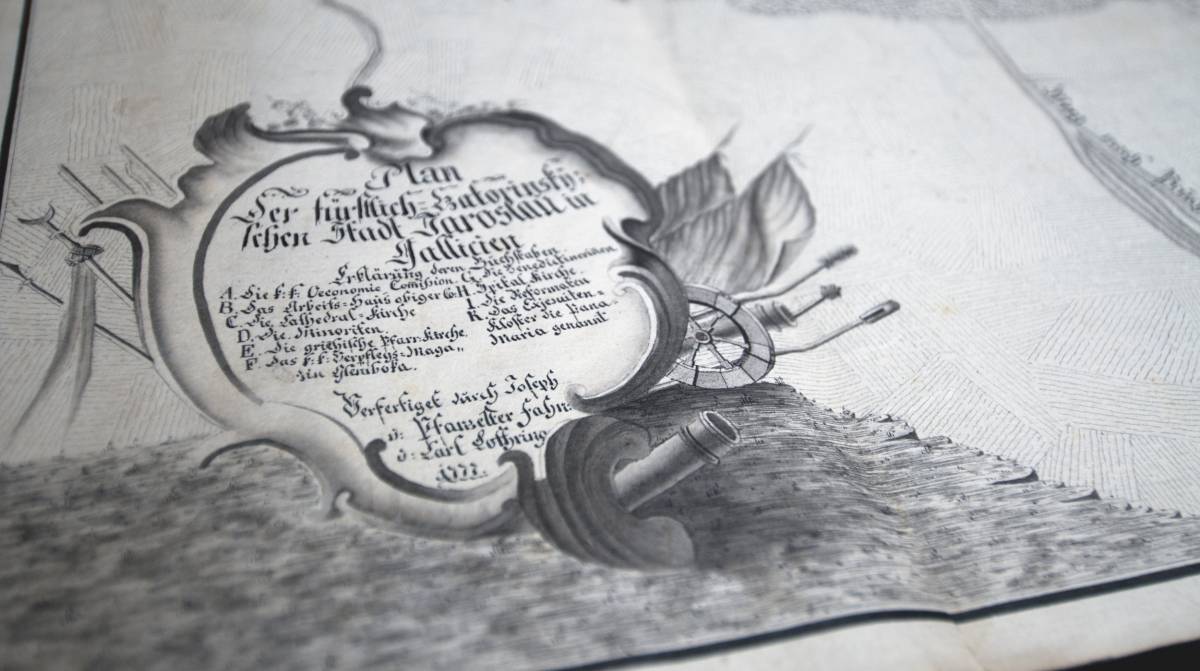 Plan
Der fürstlich=Satorinsky=
schen Stadt Jaroslau in
Gallicien
Erklärung deren Buchstaben.
A. Die k: k: Oeconomie Comission.
B. Das Arbeits=Haus obiger Co:
C. Die Cathedral=Kirche
D. Die Minoriten
E. Die griechische Pfarr=Kirche.
F. Das k: k: Verpflegs=Maga„
zin Glemboka.
G. die Benedictinerinen
H. Spital Kirche.
I. Die Reformaten
K. Das Exjesuiten=
Kloster die Pana=
Maria genannt
Verfertiget durch Joseph
Fahn:
v: Carl Lothring
1777.